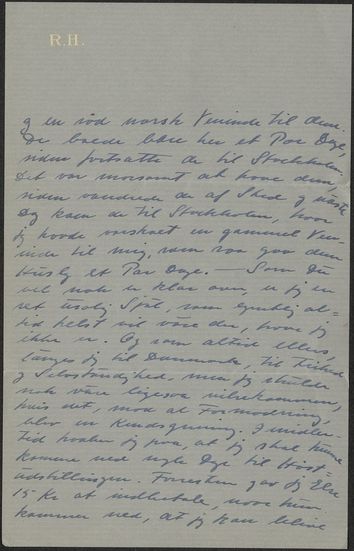 R.H.
og en sød norsk Veninde til dem.
De boede bare her et Par Dage,
siden fortsatte de til Stockholm.
Det var morsomt at have dem,
siden vandrede de af Sted og næste
Dag kom de til Stockholm, hvor
jeg havde varskoet en gammel Ven-
inde til mig, som saa gav dem
Husly et Par Dage. — Som Du
vel nok er klar over, er jeg en
ret urolig Sjæl, som egentlig al-
tid helst vil være der, hvor jeg
ikke er. Og som altid ellers,
længes jeg til Danmark, til Frihed
og Selvstændighed, men jeg skulde
nok være ligesaa velkommen,
hvis det, mod al Formodning,
blev en Kendsgerning. Imidler-
tid haaber jeg paa, at jeg skal kunne
komme ned nogle Dage til Høst-
udstillingen. Forresten gav jeg Else
15 Kr at indbetale, naar hun
kommer ned, at jeg kan blive